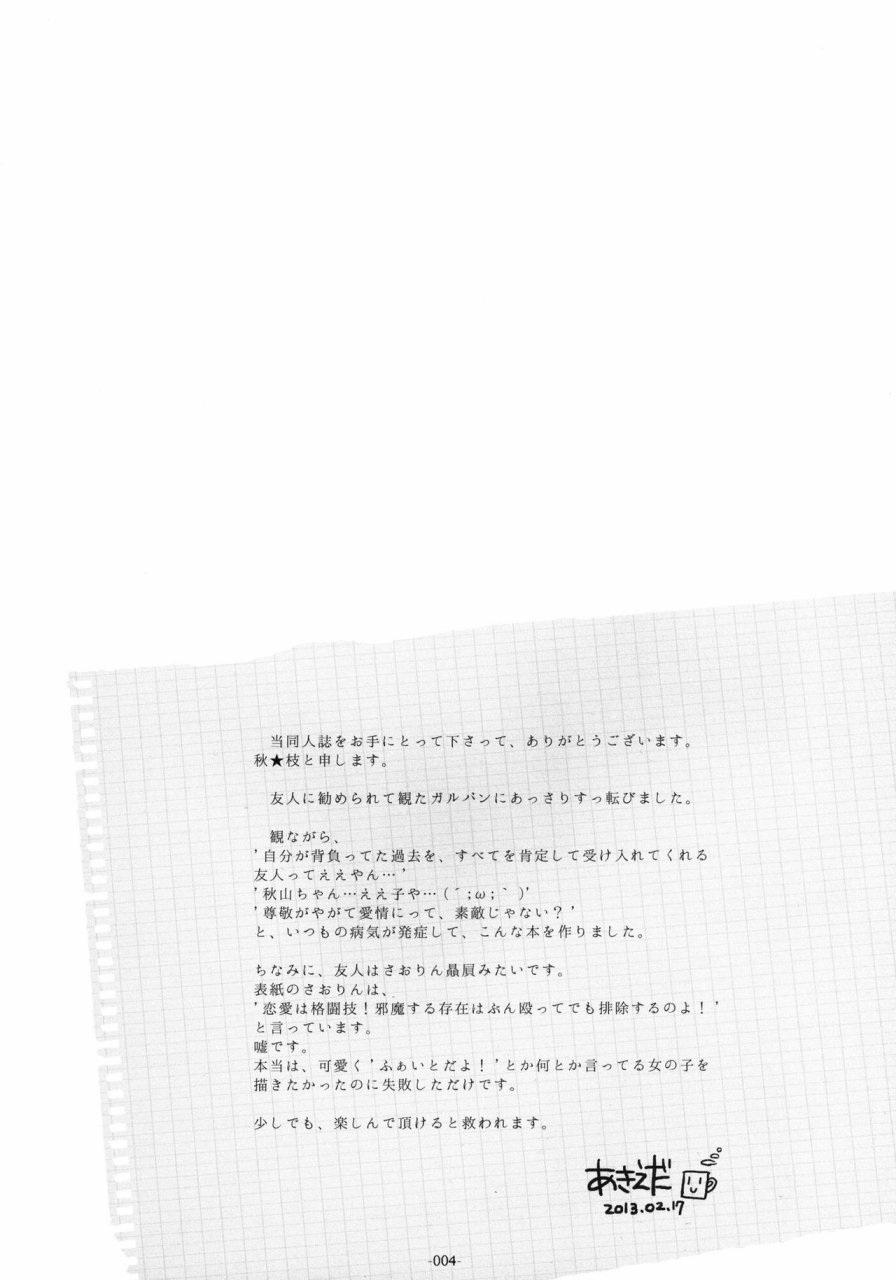 当同人誌をお手にとって下さって、ありがとうございます。
秋★枝と申します。
友人に勧められて観たガルパンにあっさりすっ転びました。
観ながら、
'自分が背負ってた過去を、すべてを肯定して受け入れてくれる
友人ってええやん…'
'秋山ちゃん…ええ子や…(´;ω;｀)'
'尊敬がやがて愛情にって、素敵じゃない？'
と、いつもの病気が発症して、こんな本を作りました。
ちなみに、友人はさおりん贔屓みたいです。
表紙のさおりんは、
'恋愛は格闘技！邪魔する存在はぶん殴ってでも排除するのよ！'
と言っています。
嘘です。
本当は、可愛く'ふぁいとだよ！'とか何とか言ってる女の子を
描きたかったのに失敗しただけです。
少しでも、楽しんで頂けると救われます。
あきえだ
2013.02.17
-004-